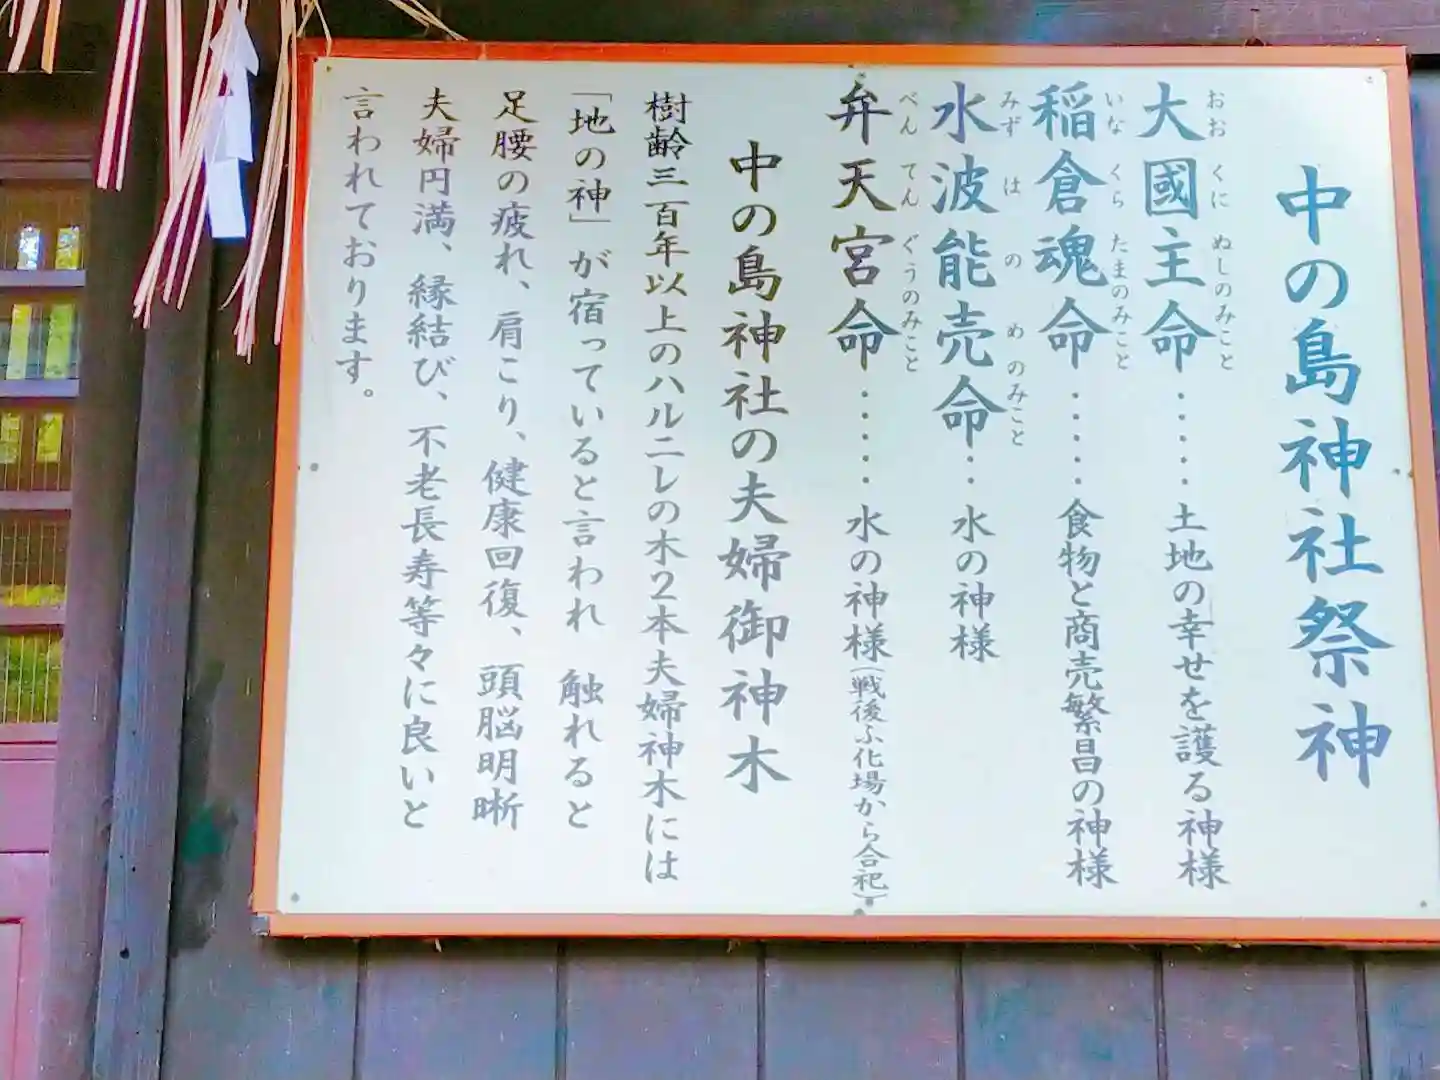 中の島神社祭神
大國主命……土地の幸せを護る神様
おおくにぬしのみこと
稲倉魂命……食物と商売繁昌の神様
いなくらたまのみこと
水波能売命‥水の神様
みずはのめのみこと
弁天宮命……水の神様(戦後ふ化場から合祀)
べんてんぐうのみこと
中の島神社の夫婦御神木
樹齢三百年以上のハルニレの木2本夫婦神木には
「地の神」が宿っていると言われ 触れると
足腰の疲れ、肩こり、健康回復、頭脳明晰
夫婦円満、縁結び、不老長寿等々に良いと
言われております。